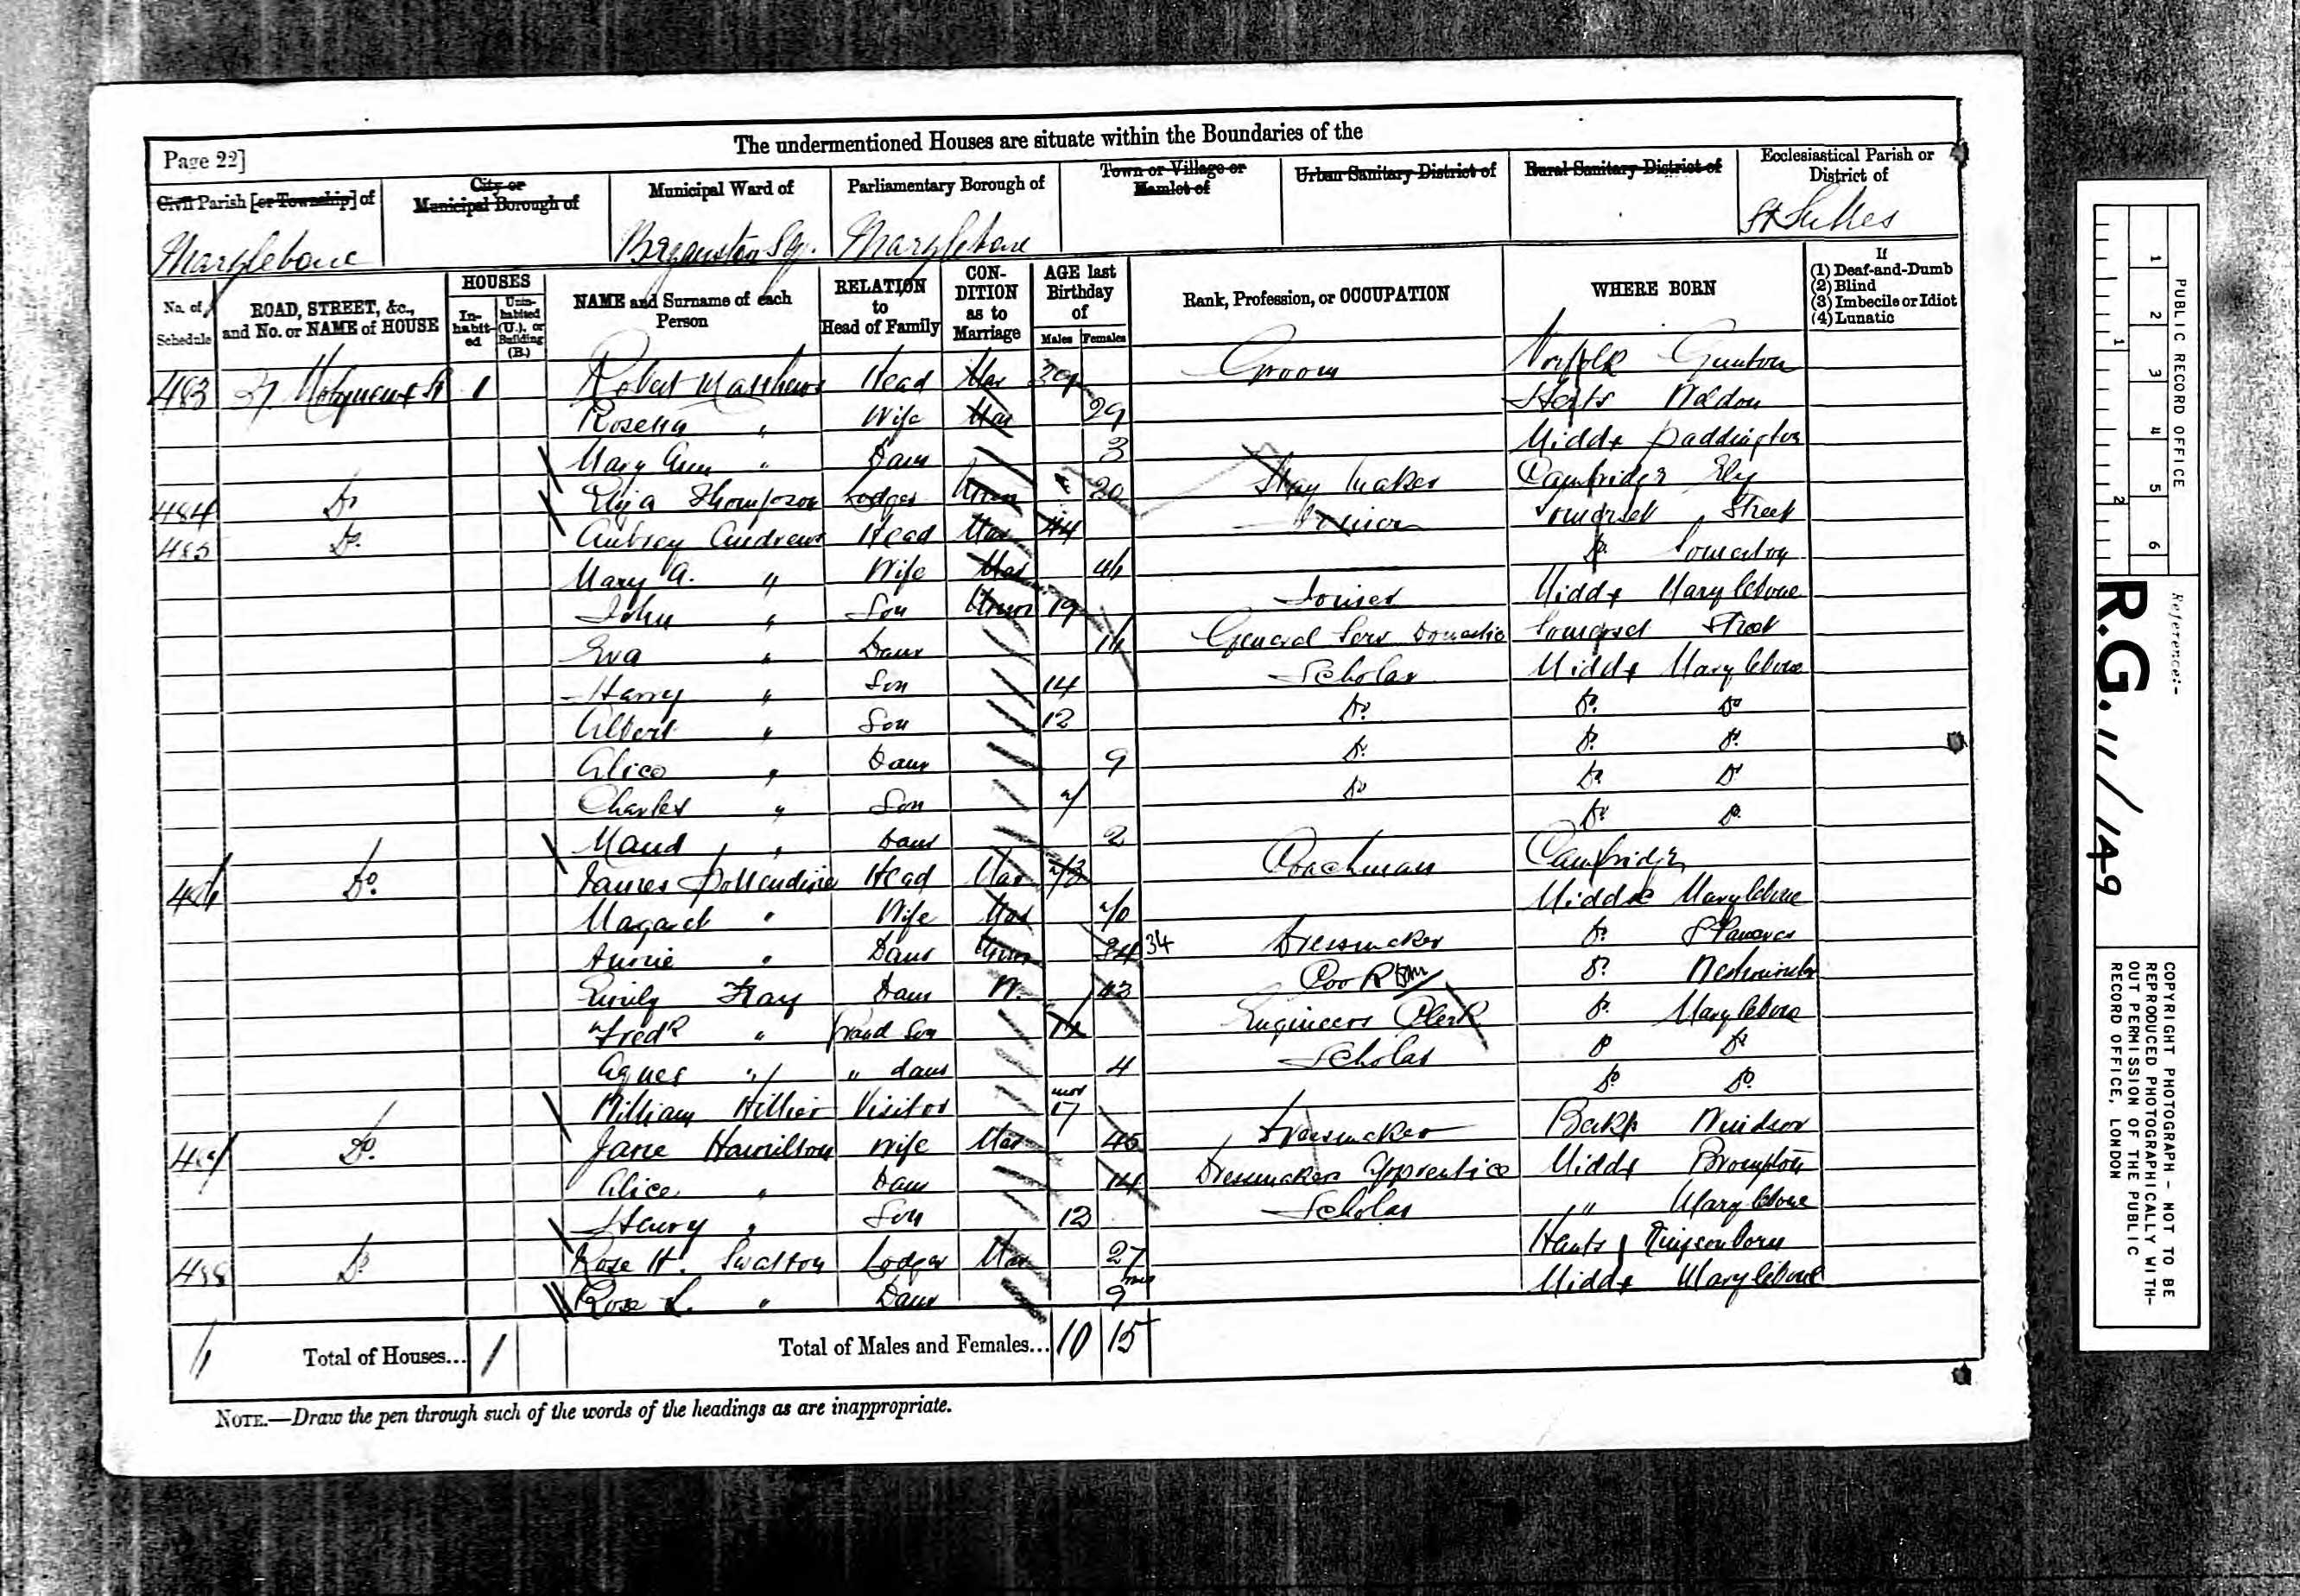 The undermentioned Houses are situate within the Boundaries of the
Page 22]
Civil Parish [or Township] of
City or Municipal Borough of
Municipal Ward of
Parliamentary Borough of
Town or Village or Hamlet of
Urban Sanitary District of
Rural Sanitary District of
Ecclesiastical Parish or District of
Marylebone
Marylebone
St Lukes
No. of Schedule
ROAD, STREET, &c., and No. or NAME of HOUSE
HOUSES
In-habit-ed
Unin-habited (U.), or Building (B.)
NAME and Surname of each Person
RELATION to Head of Family
CON-DITION as to Marriage
AGE last Birthday of
Males Females
Rank, Profession, or OCCUPATION
WHERE BORN
If
(1) Deaf-and-Dumb
(2) Blind
(3) Imbecile or Idiot
(4) Lunatic
483 1 Robert Matthews Head Mar 29 Groom Norfolk Gunton
Wife Mar 29 Herts
Mary Ann " Daur 3 Middx Paddington
484 Do Eliza Thompson Lodger Unm 20 Stay Maker Cambridge Ely
485 Do. Aubrey Andrews Head Mar 44 Joiner Somerset Street
Mary A. " Wife Mar 46 Do. Somerton
John " Son Unm 19 Joiner Middx Marylebone
Eva " Daur Genera Serv Domestic Somerset Street
Harry " Son 14 Scholar Middx Marylebone
Albert " Son 12 Do. Do. Do
Alice " Daur 9 Do. Do. Do.
Charles " Son 7 Do Do. Do
Maud " Daur 2 Do Do.
486 Do. James Head Mar 73 Coachman Cambridge
Magaret " Wife Mar 70 Middx Marylebone
Annie " Daur Unm 34 34 Dressmaker Do. St Pancras
Emily Fray Daur W. 43 Cook Do. Westminster
Fredk " Grand Son Engineers Clerk Do. Marylebone
Agnes " " daur 4 Scholar Do Do
William Hillier Visitor mos 17 Do. Do.
487 Do. Jane Hamilton Wife Mar 45 Dressmaker Berks Windsor
Alice " Daur 14 Dressmaker Apprentice Middx Brompton
Henry " Son 12 Scholar " Marylebone
488 Do Rose H. Lodger Mar 27 Hants
Rose L. " Daur mos 9 Middx Marylebone
Total of Houses... 1
Total of Males and Females... 10 15
NOTE.—Draw the pen through such of the words of the headings as are inappropriate.
1 2 3 4 5 6
1 2
PUBLIC RECORD OFFICE
Reference:-
R.G. 11/149
COPYRIGHT PHOTOGRAPH - NOT TO BE
REPRODUCED PHOTOGRAPHICALLY WITH-
OUT PERMISSION OF THE PUBLIC
RECORD OFFICE, LONDON